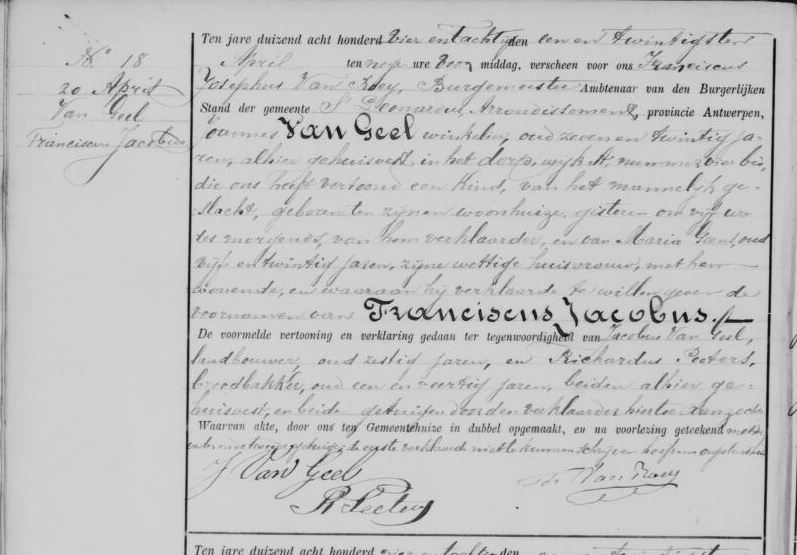 N.º 18
20 April
Van Geel
Franciscus Jacobus
Ten jare duizend acht honderd vier en tachtig den een en twintigsten
April ten negen ure voor middag, verscheen voor ons Franciscus
Josephus Van Roey, Burgemeester Ambtenaar van den Burgerlijken
Stand der gemeente St Leonardus, Arrondissement, provincie Antwerpen,
Joannes Van Geel winkelier, oud zeven en twintig ja-
ren, alhier gehuisvest in het dorp, wijk A, nummer vier bis,
die ons heeft vertoond een Kind, van het mannelijk ge-
slacht, geboren ten zijnen woonhuize gisteren om vijf ure
des morgends, van hem verklaarder, en van Maria Geens, oud
vijf en twintig jaren, zijne wettige huisvrouw, met hem
wonende, en waaraan hij verklaarde te willen geven de
voornamen van Franciscus Jacobus.
De voormelde vertooning en verklaring gedaan ter tegenwoordigheid van Jacobus Van Geel,
landbouwer, oud zestig jaren, en Richardus Peeters,
broodbakker, oud een en veertig jaren, beiden alhier ge-
huisvest, en beide getuigen door den verklaarder hiertoe aanzocht
Waarvan akte, door ons ten Gemeentehuize in dubbel opgemaakt, en na voorlezing geteekend met den
de eerste verklaard niet te kunnen schrijven
J Van Geel
R Peeters
Van Roey
Ten jare duizend acht honderd vier en tachtig den een en twintigst